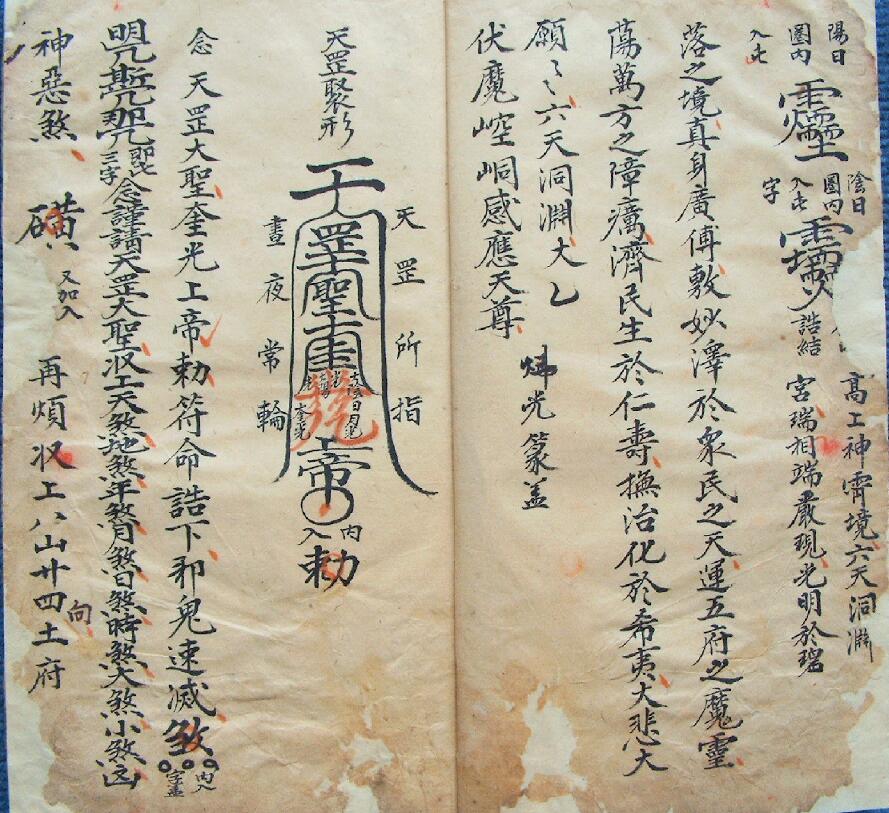 陽日
圈内
入此
陰日
圈内
入此
字
誥結
高上神霄境六天洞淵
宮瑞相端嚴現光明於碧
落之境真身廣傅敷妙澤於衆民之天運五府之魔靈
蕩萬方之障癘濟民生於仁壽撫治化於希夷大悲大
願々々六天洞淵大乙
伏魔崆峒感應天尊
炁光篆盖
天罡所指
天罡聚形
罡聖
上帝
内
入
勅
晝夜常輪
念 天罡大聖奎光上帝勅符命誥下邪鬼速滅
内入
字盖
即此
三字
念謹請天罡大聖収上天煞地煞年煞月煞日煞時煞大煞小煞凶
神惡煞
又加入
再煩収上八山廿四土府
向